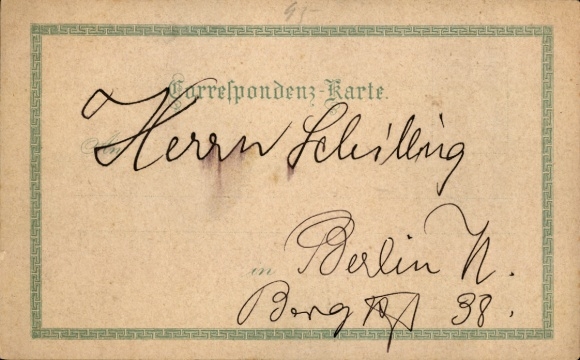 95-
Correspondenz-Karte.
An
Herrn Schilling
in Berlin N.
Bergstr 38.